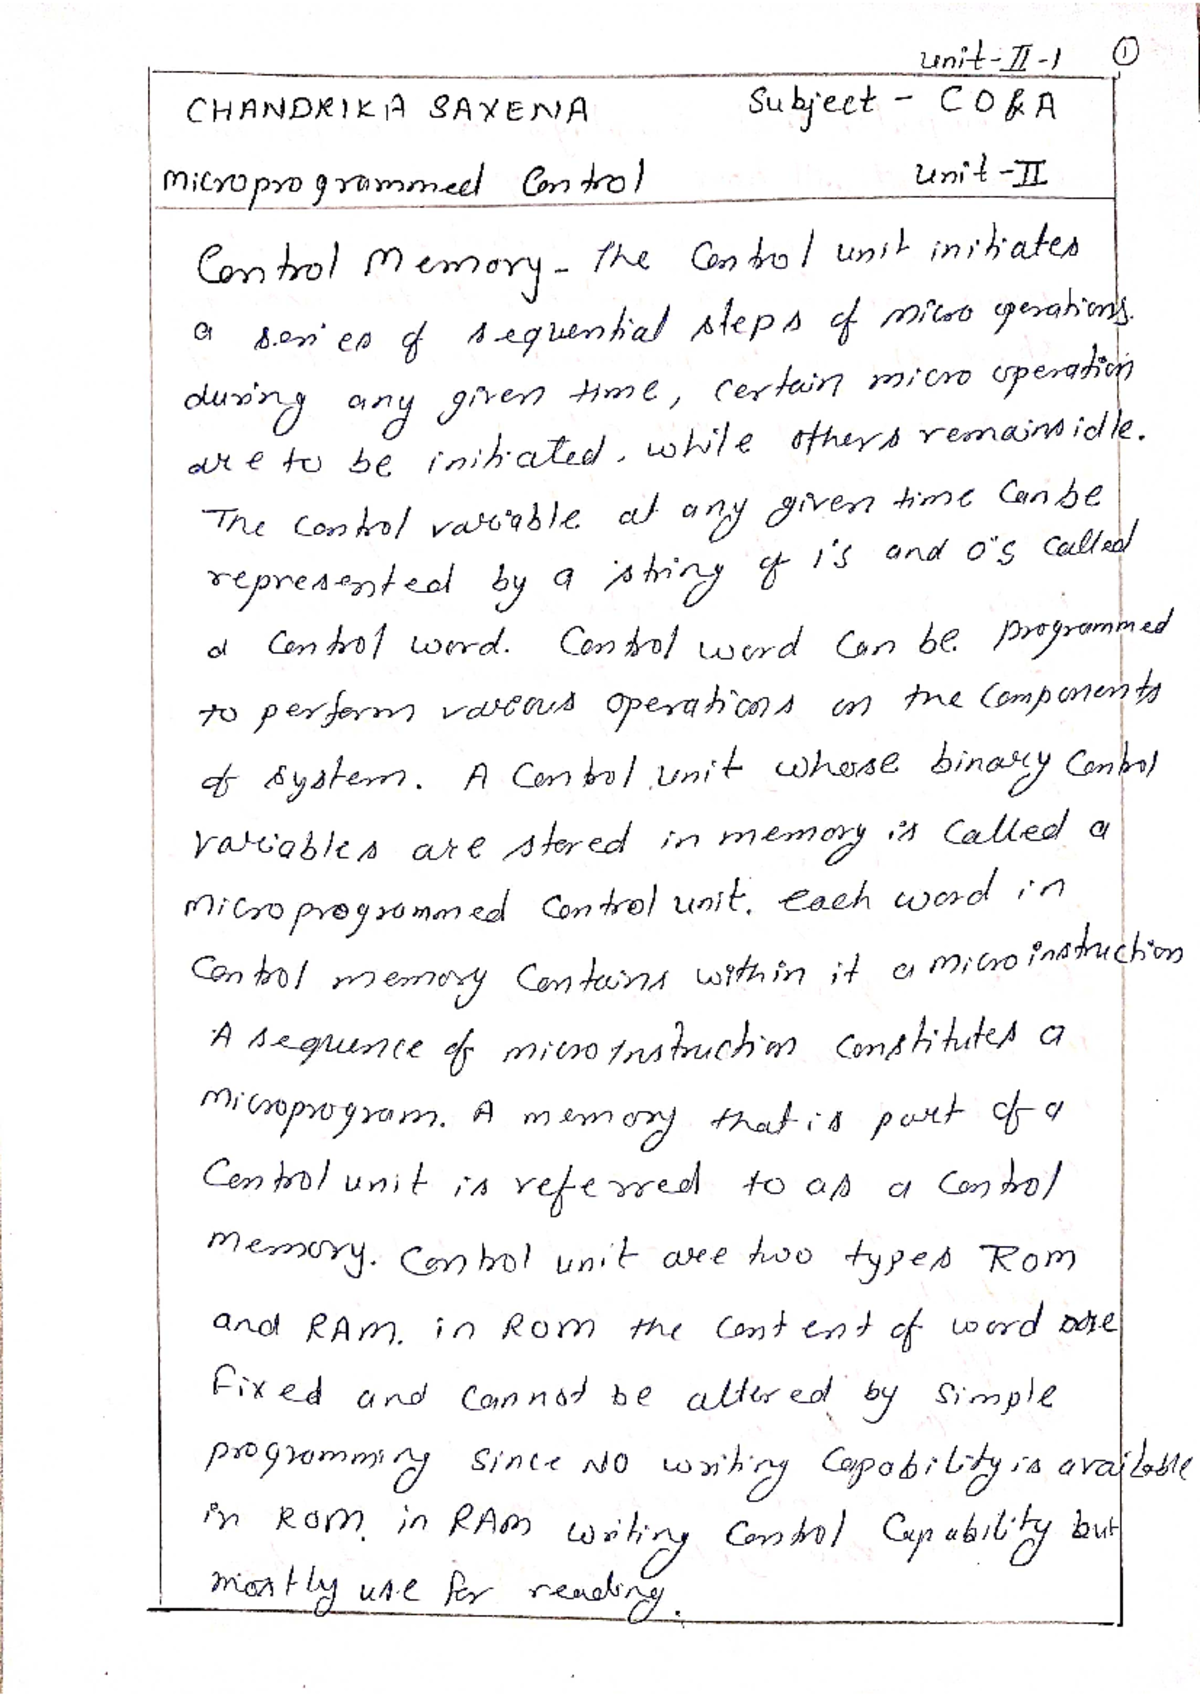 Unit-II-1 ①
CHANDRIKA SAXENA Subject - CO&A
Microprogrammed Control Unit-II
Control Memory - The Control unit initiates
a series of sequential steps of micro operations.
during any given time, certain micro operation
are to be initiated, while others remains idle.
The control variable at any given time can be
represented by a string of 1's and 0's called
a Control word. Control word can be programmed
to perform various operations on the components
of system. A Control unit whose binary Control
variables are stored in memory is called a
microprogrammed control unit. each word in
Control memory contains within it a microinstruction
A sequence of microinstruction constitutes a
microprogram. A memory that is part of a
Control unit is referred to as a control
memory. Control unit are two types ROM
and RAM. in ROM the content of word are
fixed and cannot be altered by simple
programming since NO writing capability is available
in ROM. in RAM writing control Capability but
mostly use for reading.